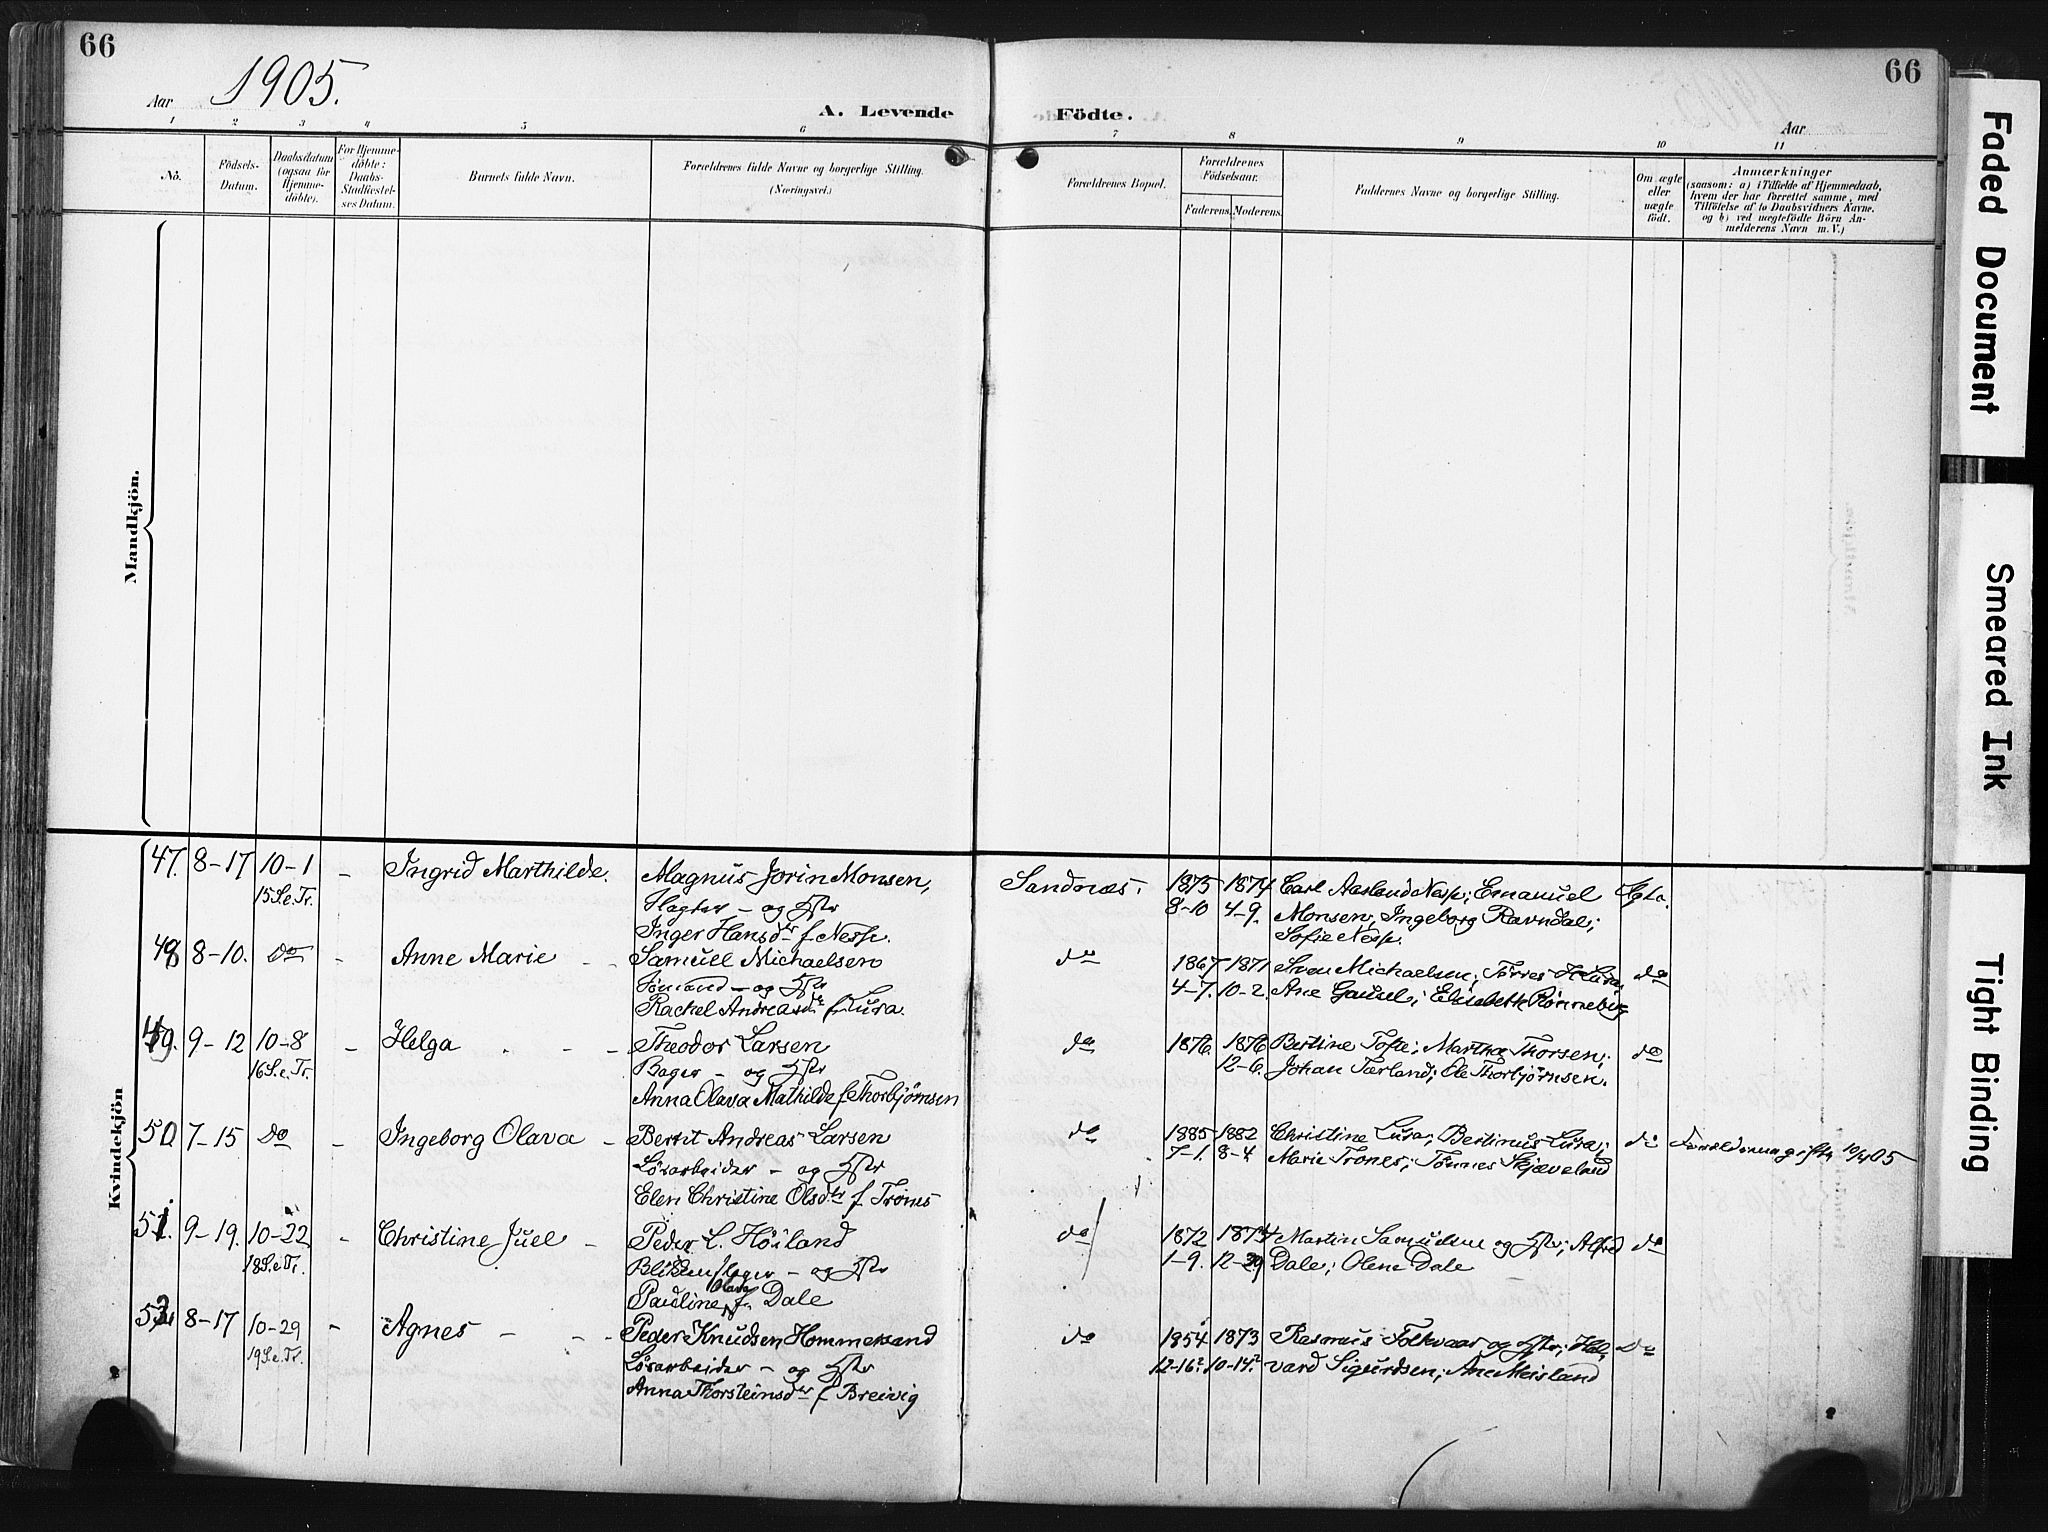 66
1905.
Aar
A. Levende
1 2 3 4 5 6
No.
Födsels-
Datum.
Daabsdatum
(ogsaa for
Hjemme-
döbte).
For Hjemme-
döbte:
Daabs-
Stadfæstel-
ses Datum.
Barnets fulde Navn.
Forældrenes fulde Navne og borgerlige Stilling.
(Næringsvei.)
Mandkjön.
Kvindekjön
47. 8-17 10-1 - Ingrid Marthilde. Magnus Jorin Monsen,
15 S.e.Tr. - og Hstr
Inger Hansdtr f. Nessp.
48 8-10. Do - Anne Marie - - Samuel Michaelsen
Sömand - og Hstr
Rackel Andreasdtr f. Lura.
49. 9-12 10-8 - Helga - - Theodor Larsen
16 S.e.Tr. Bager - og Hstr
Anna Olava Mathilde f. Thorbjørnsen
50 7-15 Do - Ingeborg Olava - Bertit Andreas Larsen
Lösarbeider - og Hstr
Elen Christine Olsdtr f. Trones
51. 9-19. 10-22 - Christine Juel - Peder L. Höiland
18 S.e.Tr. Blikkenslager - og Hstr
Pauline Olava f. Dale
52 8-17 10-29 - Agnes - - Peder Knudsen Hommersand
19 S.e.Tr. Lösarbeider - og Hstr
Anna Thorsteinsdtr f. Breivig
66
Födte.
Aar
7 8 9 10 11
Forældrenes Bopæl.
Forældrenes
Födselsaar.
Faderens. Moderens.
Faddernes Navne og borgerlige Stilling.
Om ægte
eller
uægte
födt.
Anmærkninger
(saasom: a) i Tilfælde af Hjemmedaab,
hvem der har forrettet samme, med
Tilföielse af to Daabsvidners Navne.
og b) ved uægtefödte Börn An-
melderens Navn m. V.)
Sandnæs. 1875 1874 Carl Aasland Nessp; Emanuel Ægte.
8-10 4-9. Monsen; Ingeborg Ravndal;
Sofie Nessp.
do 1867 1871 Sven Michaelsen; Tørres H. Lura; do
4-7. 10-2. Ane Gausel; Elisabeth Rønneberg
do 1876. 1876 Bertine Tofte; Martha Thorsen; do
12-6. Johan Tærland; Ole Thorbjørnsen.
do 1885 1882 Christine Lura; Bertinus Lura; do Forældrene gifte 10/4 05
7-1. 8-4 Marie Trones; Tønnes Skjæveland
do 1872 1874 Martin Samuelsen og Hstr; Alfred do
1-9. 12-29 Dale; Olene Dale
do 1854 1873 Rasmus Folkvaar og Hstr; Hal- Do
12-16? 10-14? vard Sigurdsen; Ane Meisland
Faded Document
Smeared Ink
Tight Binding